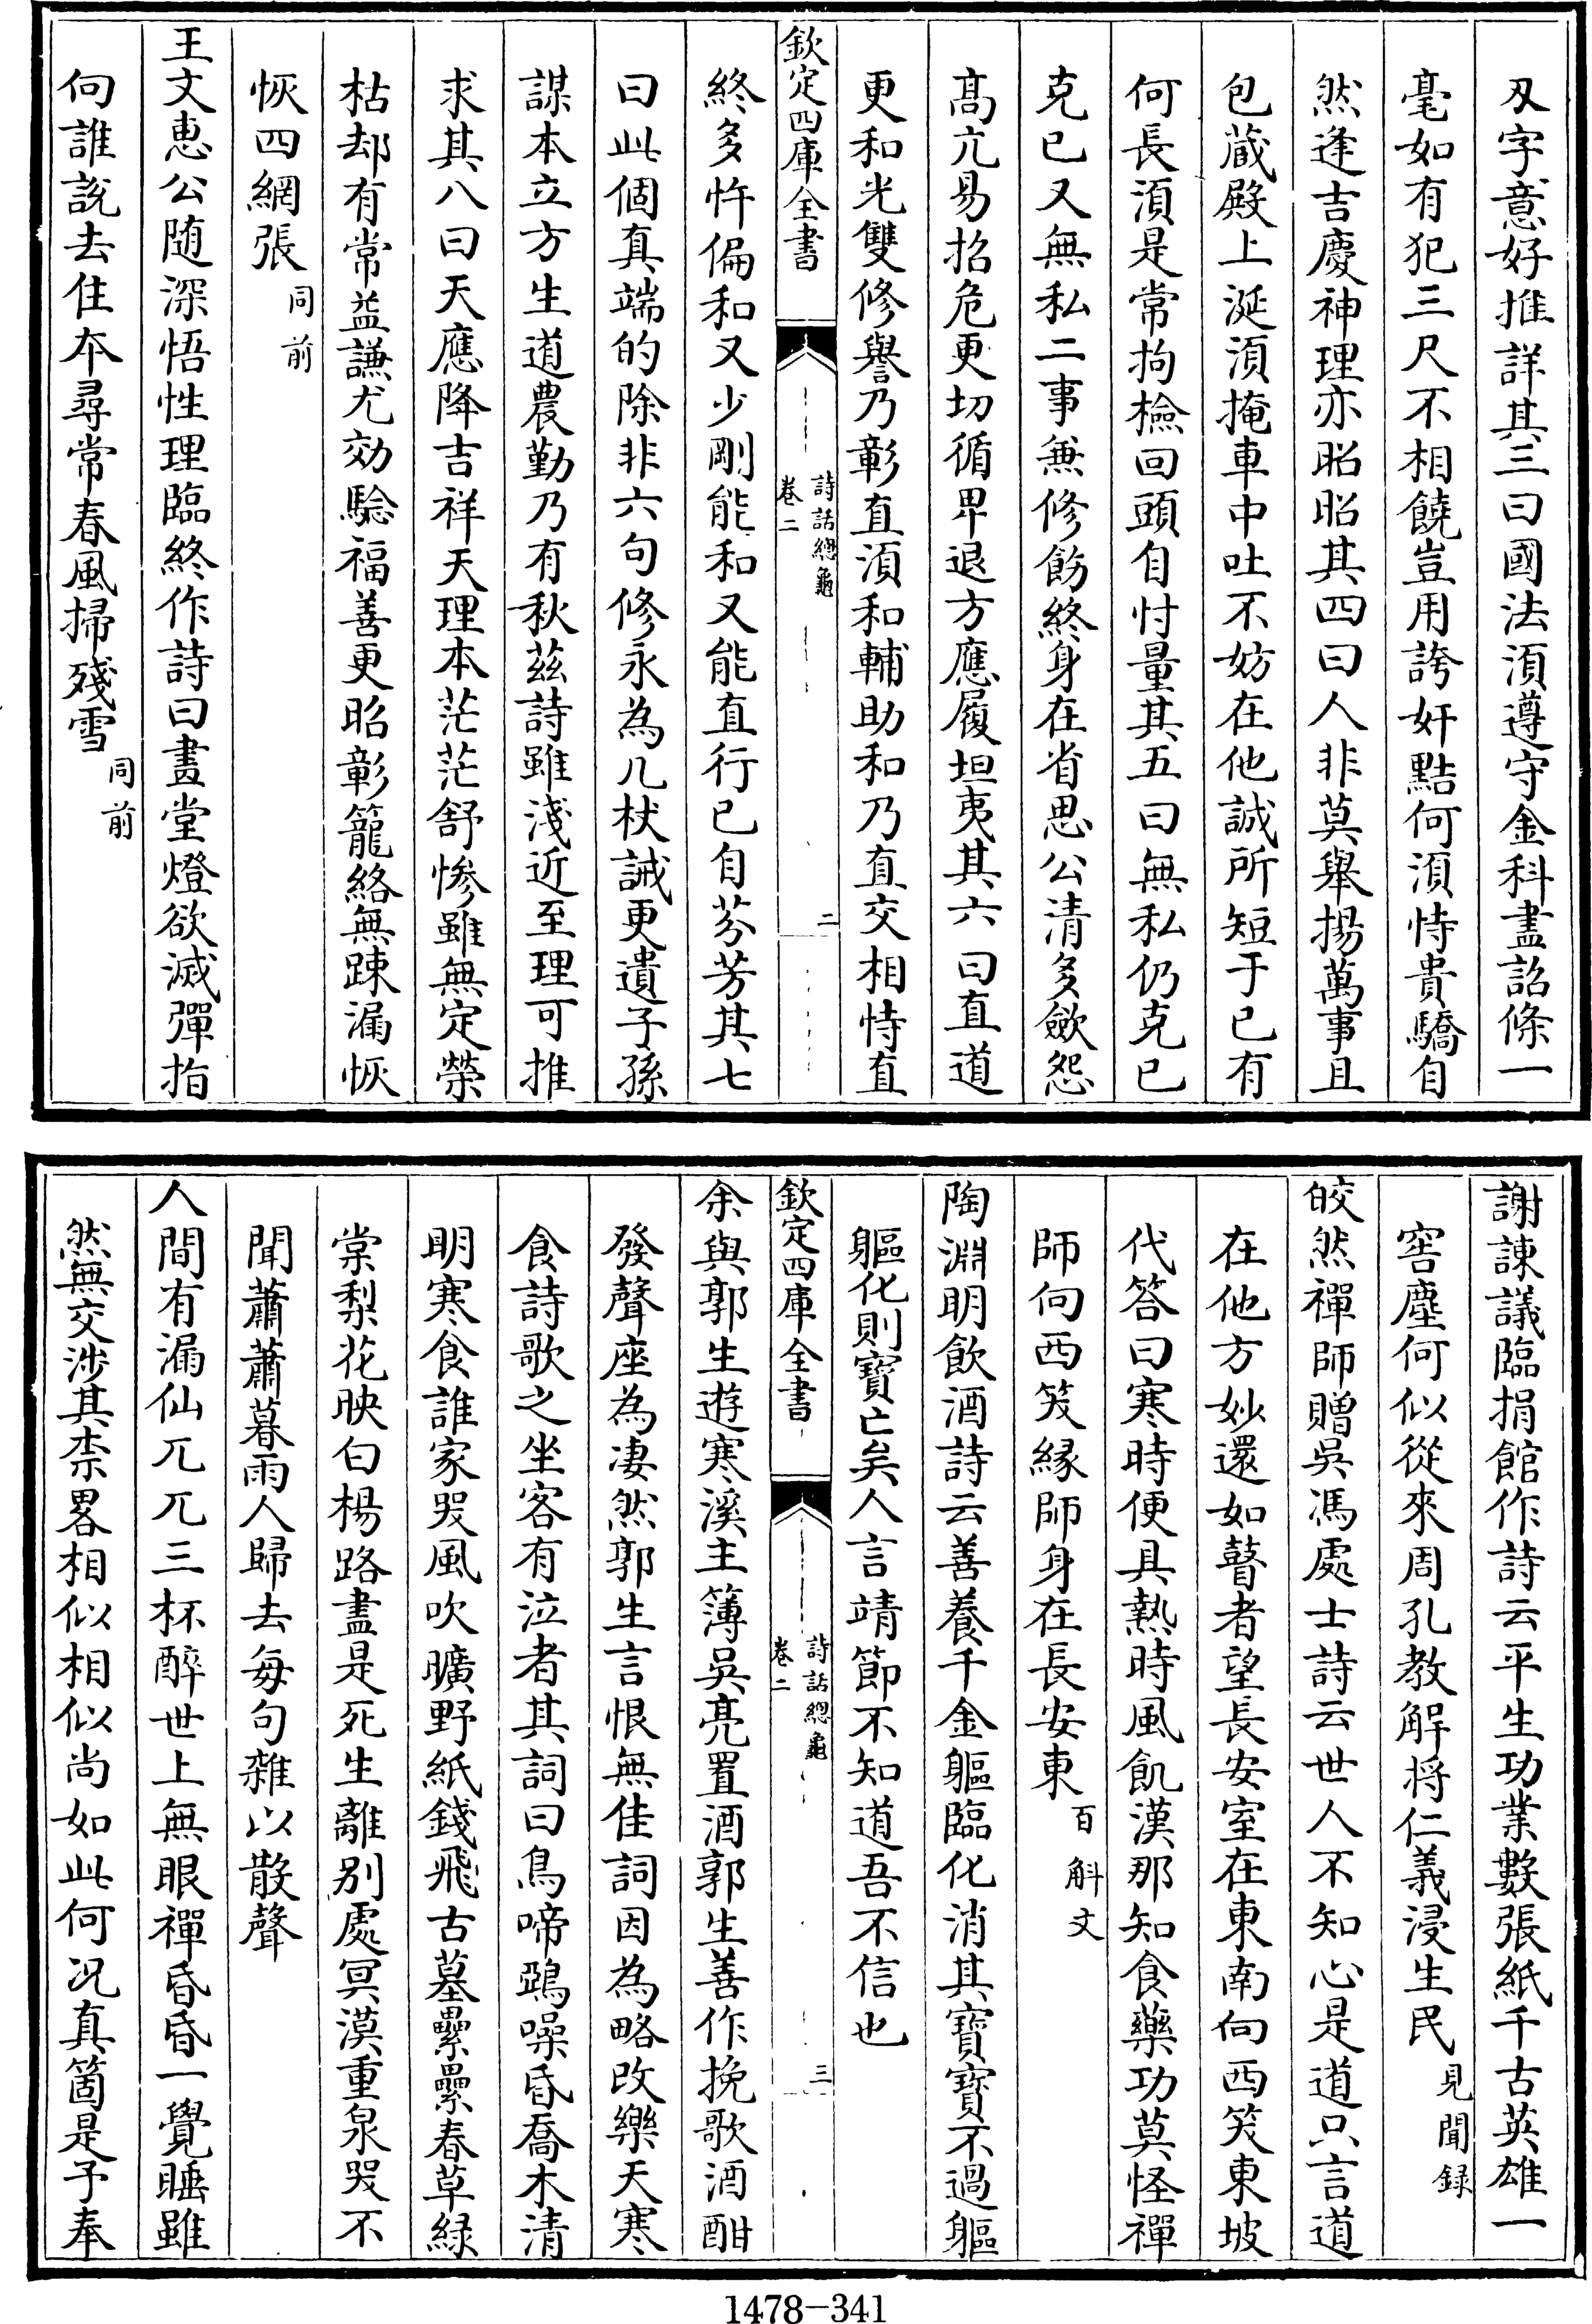 刄字意好推詳其三曰國法湏遵守金科盡詔條一
毫如有犯三尺不相饒豈用誇奸黠何湏恃貴驕自
然逢吉慶神理亦昭昭其四曰人非莫舉揚萬事且
包蔵殿上涎湏掩車中吐不妨在他誠所短于已有
何長湏是常拘檢回頭自忖量其五曰無私仍克已
克已又無私二事兼修飭終身在省思公清多歛怨
髙亢易招危更切循卑退方應履坦夷其六曰直道
更和光雙修譽乃彰直湏和輔助和乃直交相恃直
欽定四庫全書
詩話總龜
卷二
二
終多忤偏和又少剛能和又能直行已自芬芳其七
曰此個真端的除非六句修永為几杖誡更遺子孫
謀本立方生道農勤乃有秋茲詩雖淺近至理可推
求其八曰天應降吉祥天理本茫茫舒慘雖無定榮
枯却有常益謙尤効騐福善更昭彰籠絡無踈漏恢
恢四網張同前
王文惠公随深悟性理臨終作詩曰畫堂燈欲滅彈指
向誰說去住夲尋常春風掃殘雪同前
謝諌議臨捐館作詩云平生功業數張紙千古英雄一
窖塵何似從來周孔教解将仁義浸生民見聞録
皎然禪師贈吳馮處士詩云世人不知心是道只言道
在他方妙還如瞽者望長安室在東南向西笑東坡
代答曰寒時便具熱時風飢漢那知食藥功莫怪禪
師向西笑縁師身在長安東百斛文
陶淵明飲酒詩云善養千金軀臨化消其寶寳不過軀
軀化則寶亡矣人言靖節不知道吾不信也
欽定四庫全書
詩話總龜
卷二
三
余與郭生遊寒溪主簿吳亮置酒郭生善作挽歌酒酣
發聲座為凄然郭生言恨無佳詞因為略改樂天寒
食詩歌之坐客有泣者其詞曰烏啼鵶噪昏喬木清
明寒食誰家哭風吹曠野紙錢飛古墓纍纍春草緑
棠梨花映白楊路盡是死生離别處冥漠重泉哭不
聞蕭蕭暮雨人歸去毎句雜以散聲
人間有漏仙兀兀三杯醉世上無眼禪昏昏一覺睡雖
然無交渉其柰畧相似相似尚如此何况真箇是予奉
1478-341